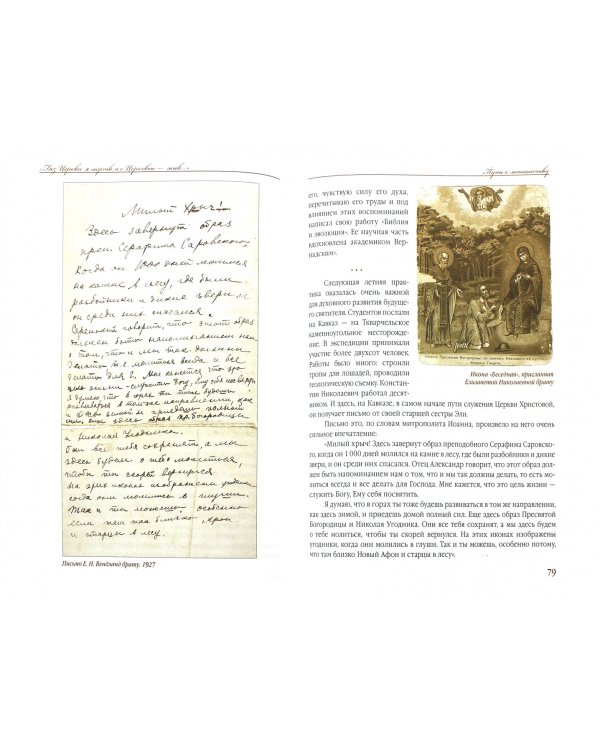 «Без Церкви я мертв, а с Церковью — жив...»
Милый хрыч!
Здесь завернут образ
преп. Серафима Саровского
Когда он 1000 дней молился
на камне в лесу, где были
разбойники и дикие звери и
он среди них спасался.
говорит, что этот образ
должен быть напоминанием нам
о том, что и мы так должны
делать т.е. молиться всегда и все
делать для Г. Мне кажется что это
цель жизни – служить Богу, Ему себя посвятить
Я думаю, что в горах ты тоже будешь
развиваться в том же направлении, как
и здесь зимой и приедешь полный
сил. Еще здесь образ Пр. Богородицы
и Николая Угодника.
Они все тебя сохранят а мы
здесь будем о тебе молиться,
чтобы ты скорей вернулся.
На этих иконах изображены угодники
когда они молились в глуши.
Так и ты можешь, особенно
там так близко Афон
и старцы в лесу.
Письмо Е. Н. Вендланд брату. 1927
Пути к монашеству
его, чувствую силу его духа,
перечитываю его труды и под
влиянием этих воспоминаний
написал свою работу «Библия
и эволюция». Ее научная часть
вдохновлена академиком Вер-
надским».
* * *
Следующая летняя прак-
тика оказалась очень важной
для духовного развития будуще-
го святителя. Студентов послали
на Кавказ — на Ткварчельское
каменноугольное месторожде-
ние. В экспедиции принимали
участие более двухсот человек.
Работы было много: строили
тропы для лошадей, проводили
геологическую съемку. Констан-
тин Николаевич работал десят-
Икона «Беседная», присланная
Елизаветой Николаевной брату
ником. И здесь, на Кавказе, в самом начале пути служения Церкви Христовой,
он получает письмо от своей старшей сестры Эли.
Письмо это, по словам митрополита Иоанна, произвело на него очень
сильное впечатление:
«Милый хрыч! Здесь завернут образ преподобного Серафима Саровско-
го, когда он 1 000 дней молился на камне в лесу, где были разбойники и дикие
звери, и он среди них спасался. Отец Александр говорит, что этот образ дол-
жен быть напоминанием нам о том, что и мы так должны делать, то есть мо-
литься всегда и все делать для Господа. Мне кажется, что это цель жизни —
служить Богу, Ему себя посвятить.
Я думаю, что в горах ты тоже будешь развиваться в том же направлении,
как здесь зимой, и приедешь домой полный сил. Еще здесь образ Пресвятой
Богородицы и Николая Угодника. Они все тебя сохранят, а мы здесь будем
о тебе молиться, чтобы ты скорей вернулся. На этих иконах изображены
угодники, когда они молились в глуши. Так и ты можешь, особенно потому,
что там близко Новый Афон и старцы в лесу».
79